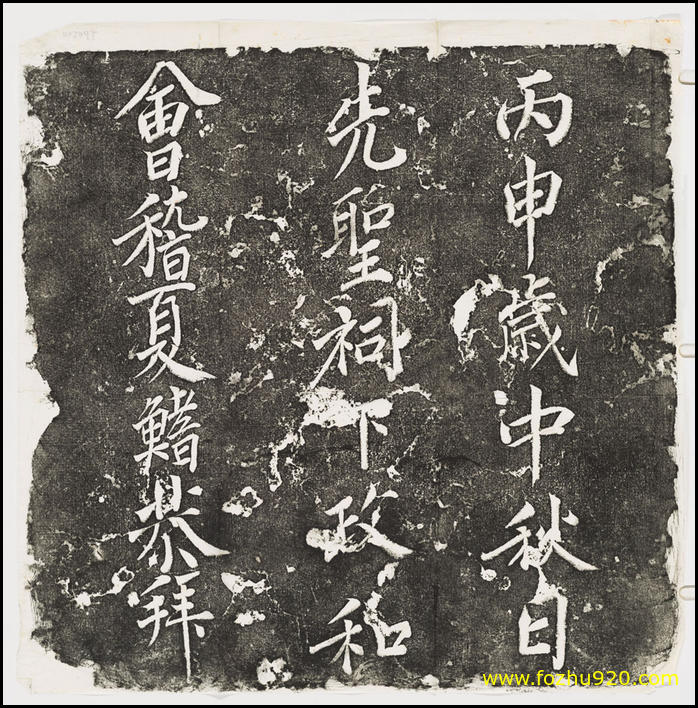 會稽夏鰭恭拜
先聖祠下政和
丙申歲仲秋日
www.fozhu920.com